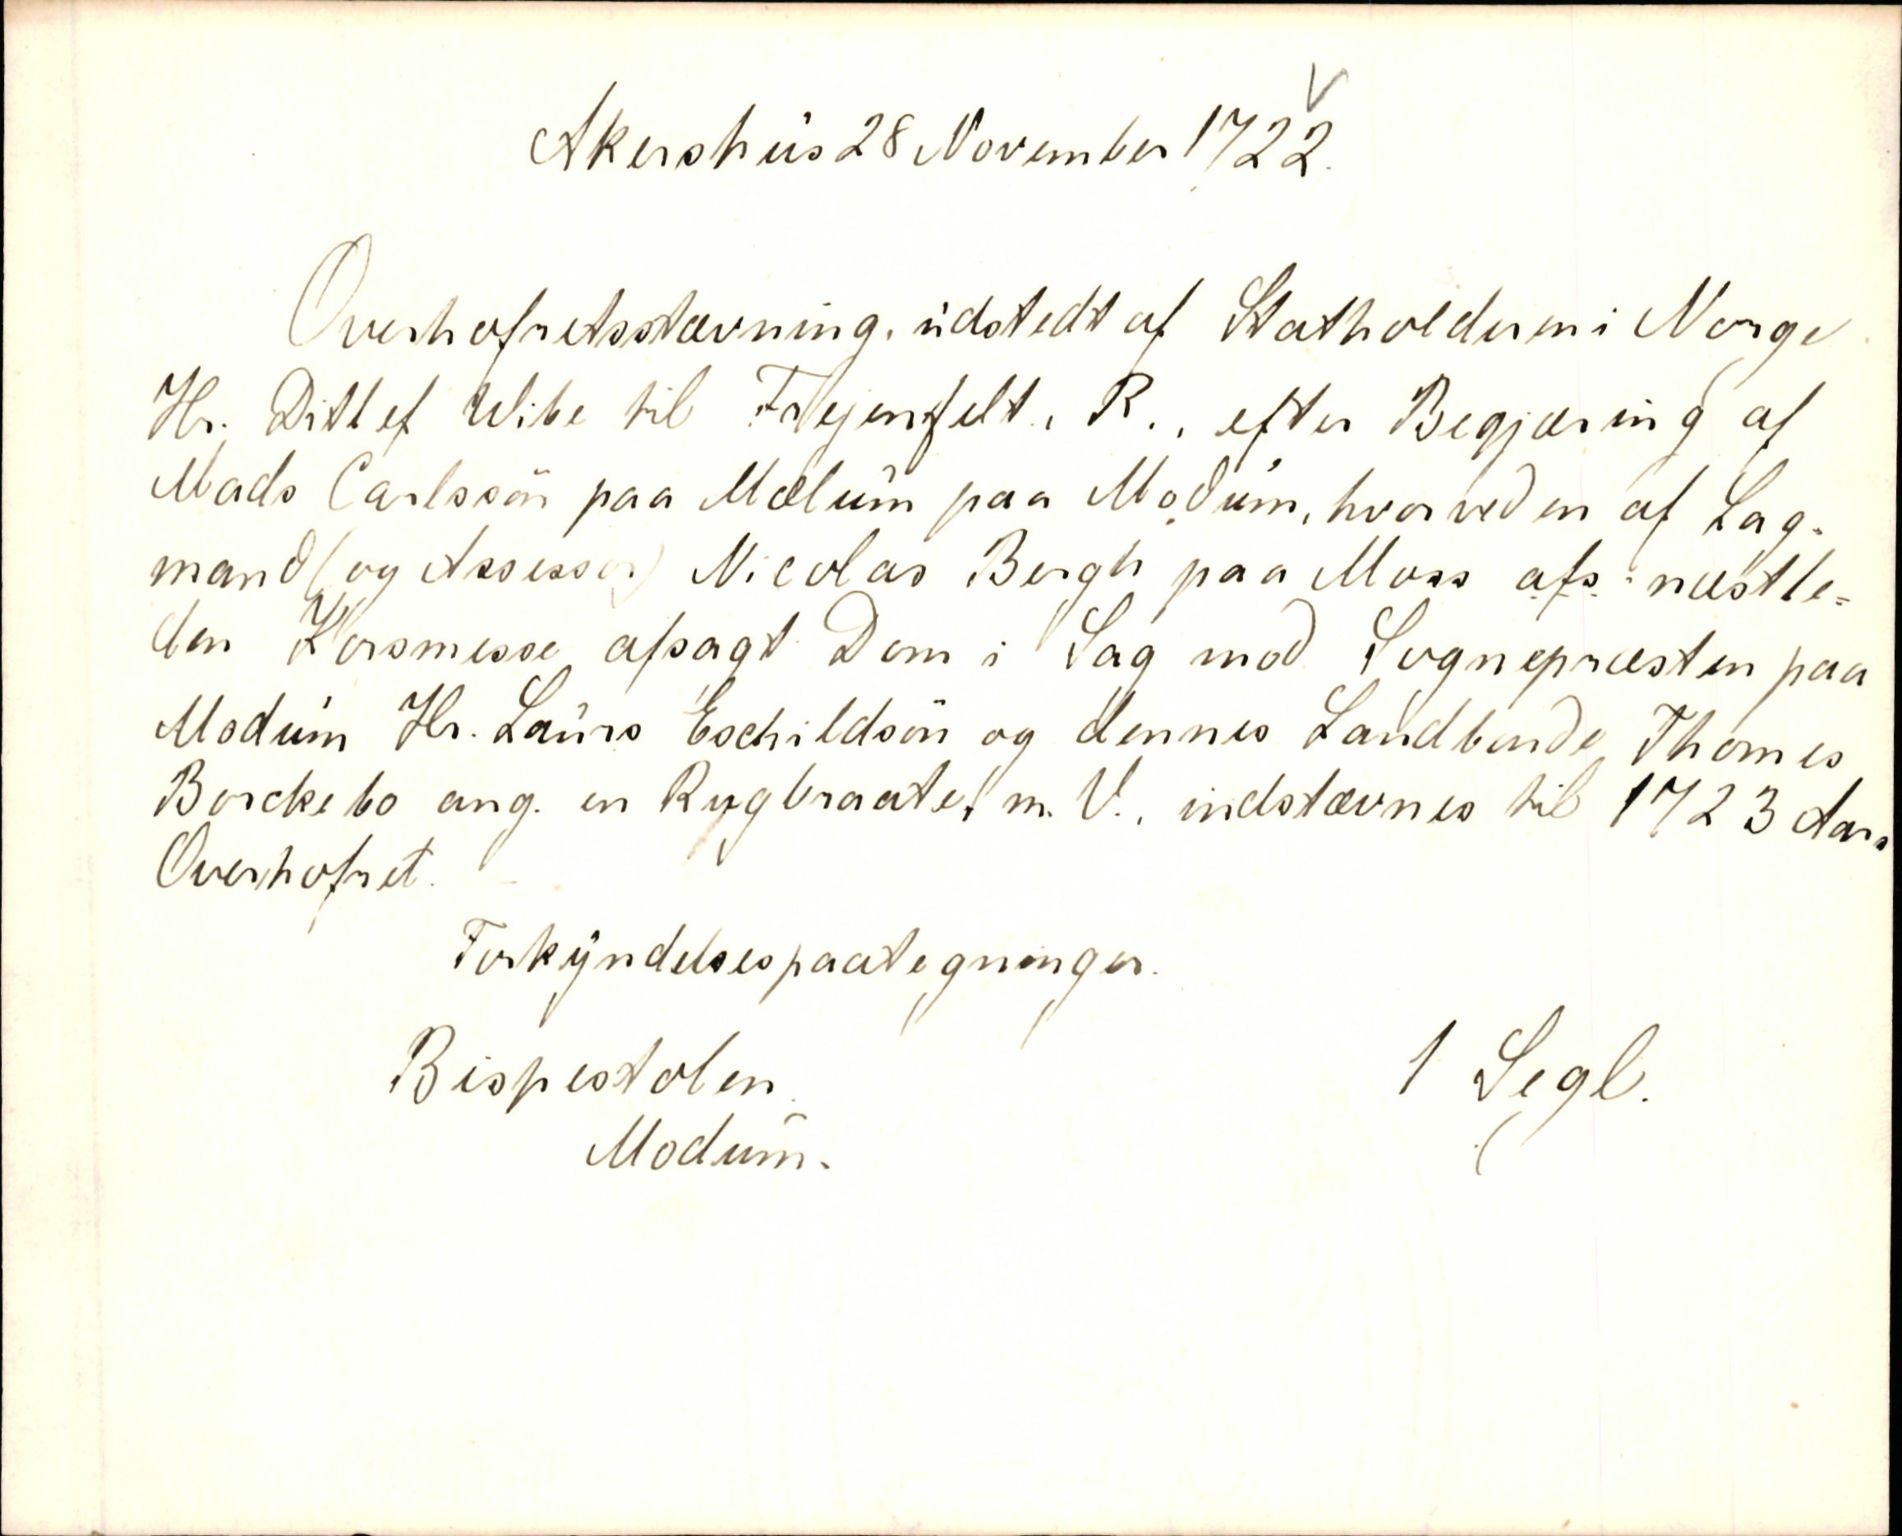 Akershus 28 November 1722.
Overhofretsstævning, udstedt af Statholderen i Norge
Hr. Ditlef Wibe til Frejenfelt, R., efter Begjæring af
Mads Carlssön paa Mælum paa Modum, hvorved en af Lag-
mand (og Assessor) Nicolas Bergh paa Moss afs. næstle-
den Korsmesse afsagt Dom i Sag mod Sognepræsten paa
Modum Hr. Laurs Eschildsön og dennes Landbonde Thomes
Borckebo ang. en Rugbraate, m. V., indstævnes til 1723 Aars
Overhofret.
Forkyndelsespaategninger.
Bispestolen 1 Segl.
Modum.